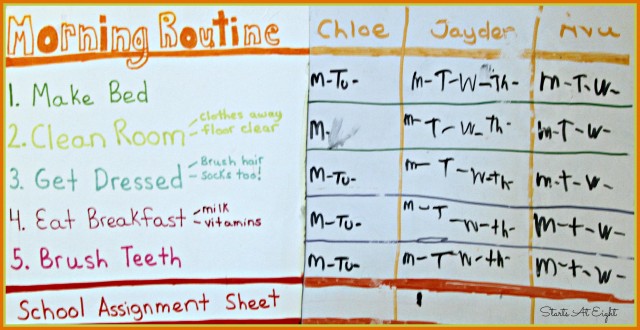 Morning Routine Chloe Jayden
1. Make Bed M-Tu- M-T-W-Th- M-T-W-
2. Clean Room - clothes away M- M-T-W-Th- M-T-W-
- floor clear
3. Get Dressed - Brush hair M-Tu- M-T-W-th- m-t-w-
- socks too!
4. Eat Breakfast - milk M-Tu- M-T-W-th- M-t-w-
- vitamins
5. Brush Teeth M-Tu- M-T-W-th- M-t-w-
School Assignment Sheet 1
Starts At Eight